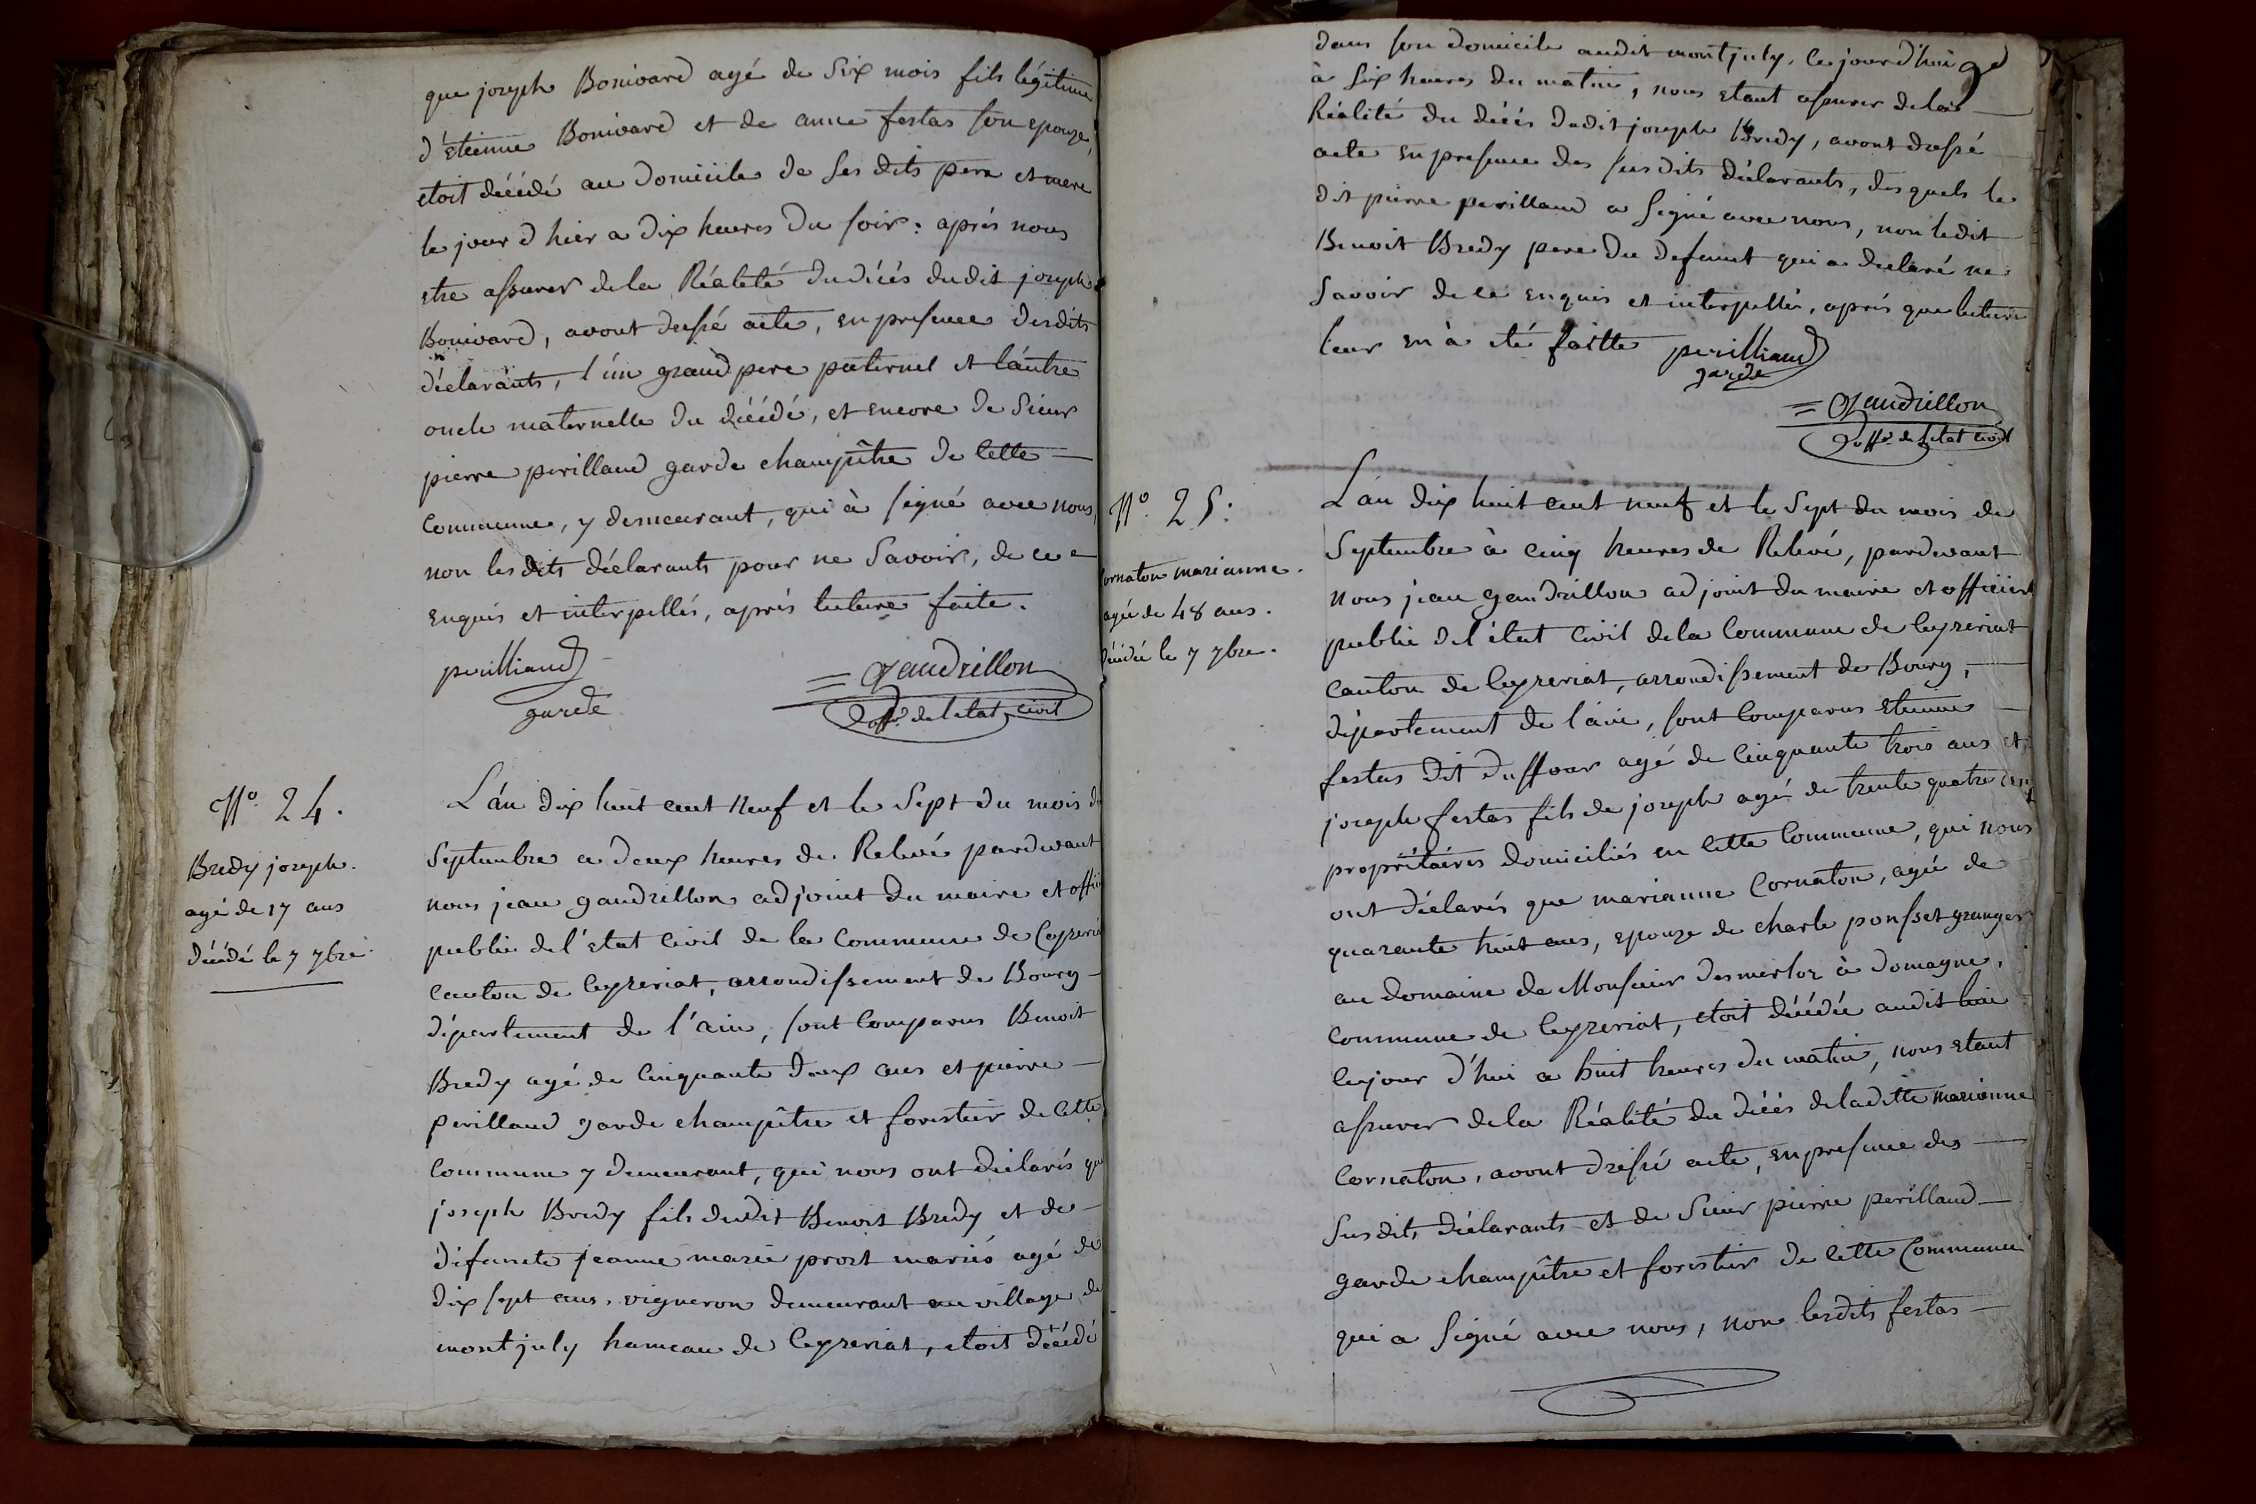 que joseph Bonivard agé de Six mois fils légitime
d'Etienne Bonivard et de anne festas son epouze,
etoit décédé au domicile de ses dits pere et mere
le jour d hier a dix heures du soir: aprés nous
etre assurer de la Réalité du décés dudit joseph
Bonivard, avont dressé acte, en presence desdits
déclarants, l'ún grand pere paternel et láutre
oncle maternelle du décédé, et encore de Sieur
pierre perillaud garde champître de Cette
Commune, y demeurant, qui à signé avec nous,
non les dits déclarants pour ne Savoir, de ce
enquis et interpellés, aprés lecture faite.
perilliaud
garde
Gaudrillon
offr de letat civil
No. 24.
Bredy joseph.
agé de 17 ans
décédé le 7 7bre
L'án dix huit cent Neuf et le Sept du mois de
Septembre a deux heures de Relevé pardevant
nous jean gaudrillon adjoint du maire et offici
public de l'etat Civil de la Commune de Ceyzeri
Canton de Ceyzeriat, arrondissement de Bourg
département de l'ain, sont Comparus Benoit
Bredy agé de Cinquante deux ans et pierre
perillaud garde champître et forestier de Cette
Commune y demeurant, qui nous ont déclarés que
joseph Bredy fils dudit Benoit Bredy et de
défuncte jeanne marie prost mariés agé de
dix sept ans, vigneron demeurant au village de
montjuly hameau de Ceyzeriat, etoit décédé
dans son domicile audit montjuly, ce jourd'hui
à Six heures du matin, nous etant assurer de la
Réalité du décés dudit joseph Bredy, avont dressé
acte en presence des susdits déclarants, desquels le
dit pierre perillaud a Signé avec nous, non ledit
Benoit Bredy pere du defunct qui a declaré ne
Savoir de ce enquis et interpellés, aprés que lecture
leur en à eté faitte
perilliaud
garde
Gaudrillon
offr de letat civil
No. 25.
Cornaton marianne.
agée de 48 ans.
décédée le 7 7bre.
L'án dix huit cent neuf et le Sept du mois de
Septembre à Cinq heures de Relevé, pardevant
nous jean gaudrillon adjoint du maire et officier
public de l'état Civil de la Commune de Ceyzeriat
Canton de Ceyzeriat, arrondissement de Bourg,
département de l'ain, sont Comparus Etienne
festas dit duffour agé de Cinquante trois ans et
joseph festas fils de joseph agé de trente quatre ans
propriétaires domiciliés en Cette Commune, qui nous
ont déclarés que marianne Cornaton, agée de
quarante huit ans, epouze de charle ponsset granger
au domaine de Monsieur desmerloz à domagne,
Commune de Ceyzeriat, etoit décédée audit lieu
cejour d'hui a huit heures du matin, nous etant
assurer de la Réalité du décés de laditte marianne
Cornaton, avont dressé acte, en presence des
Susdits déclarants et de Sieur pierre perillaud
garde champître et forestier de Cette Commune
qui a Signé avec nous, non lesdits festas